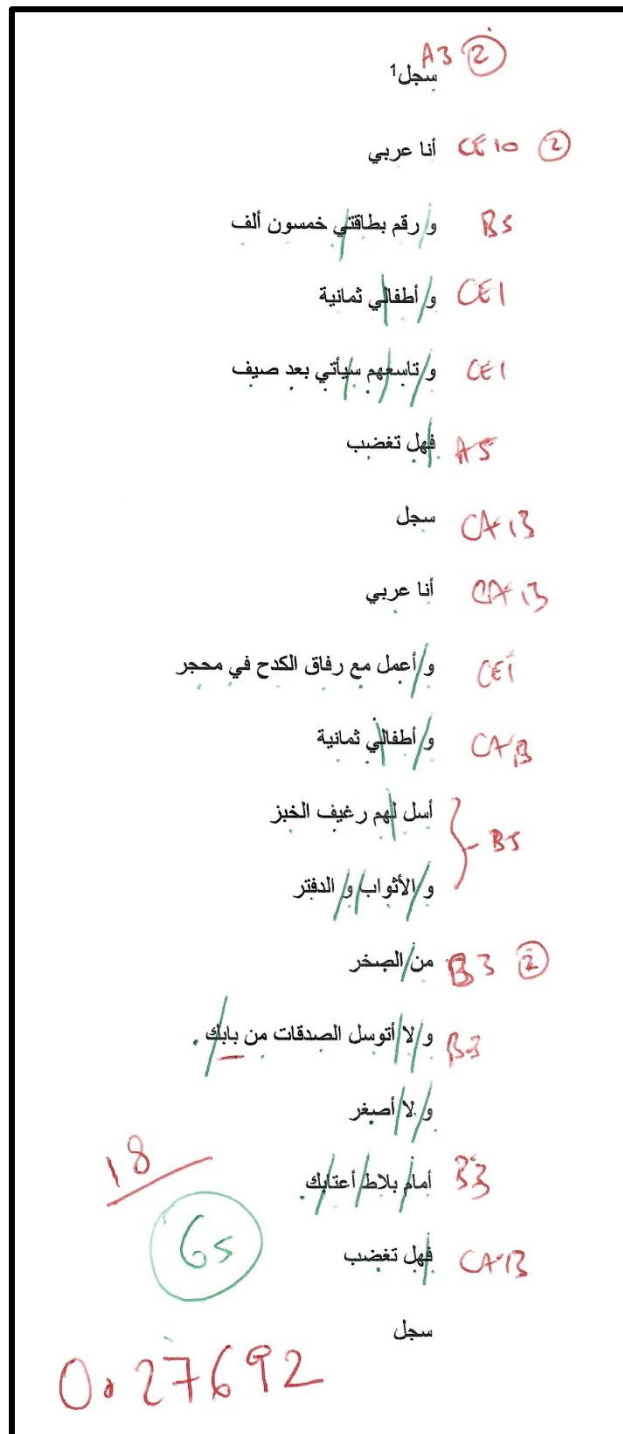 سجل¹ A3 ②
أنا عربي CE10 ②
و رقم بطاقتي خمسون ألف B5
و أطفالي ثمانية CE1
و تاسعهم سيأتي بعد صيف CE1
فهل تغضب A5
سجل CA13
أنا عربي CA13
و أعمل مع رفاق الكدح في محجر CE1
و أطفالي ثمانية
أسل لهم رغيف الخبز
B5
و الأثواب و الدفتر
من الصخر B3 ②
و لا أتوسل الصدقات من بابك. B3
و لا أصغر
أمام بلاط أعتابك. B3
فهل تغضب CA13
سجل
18
65
0.27692